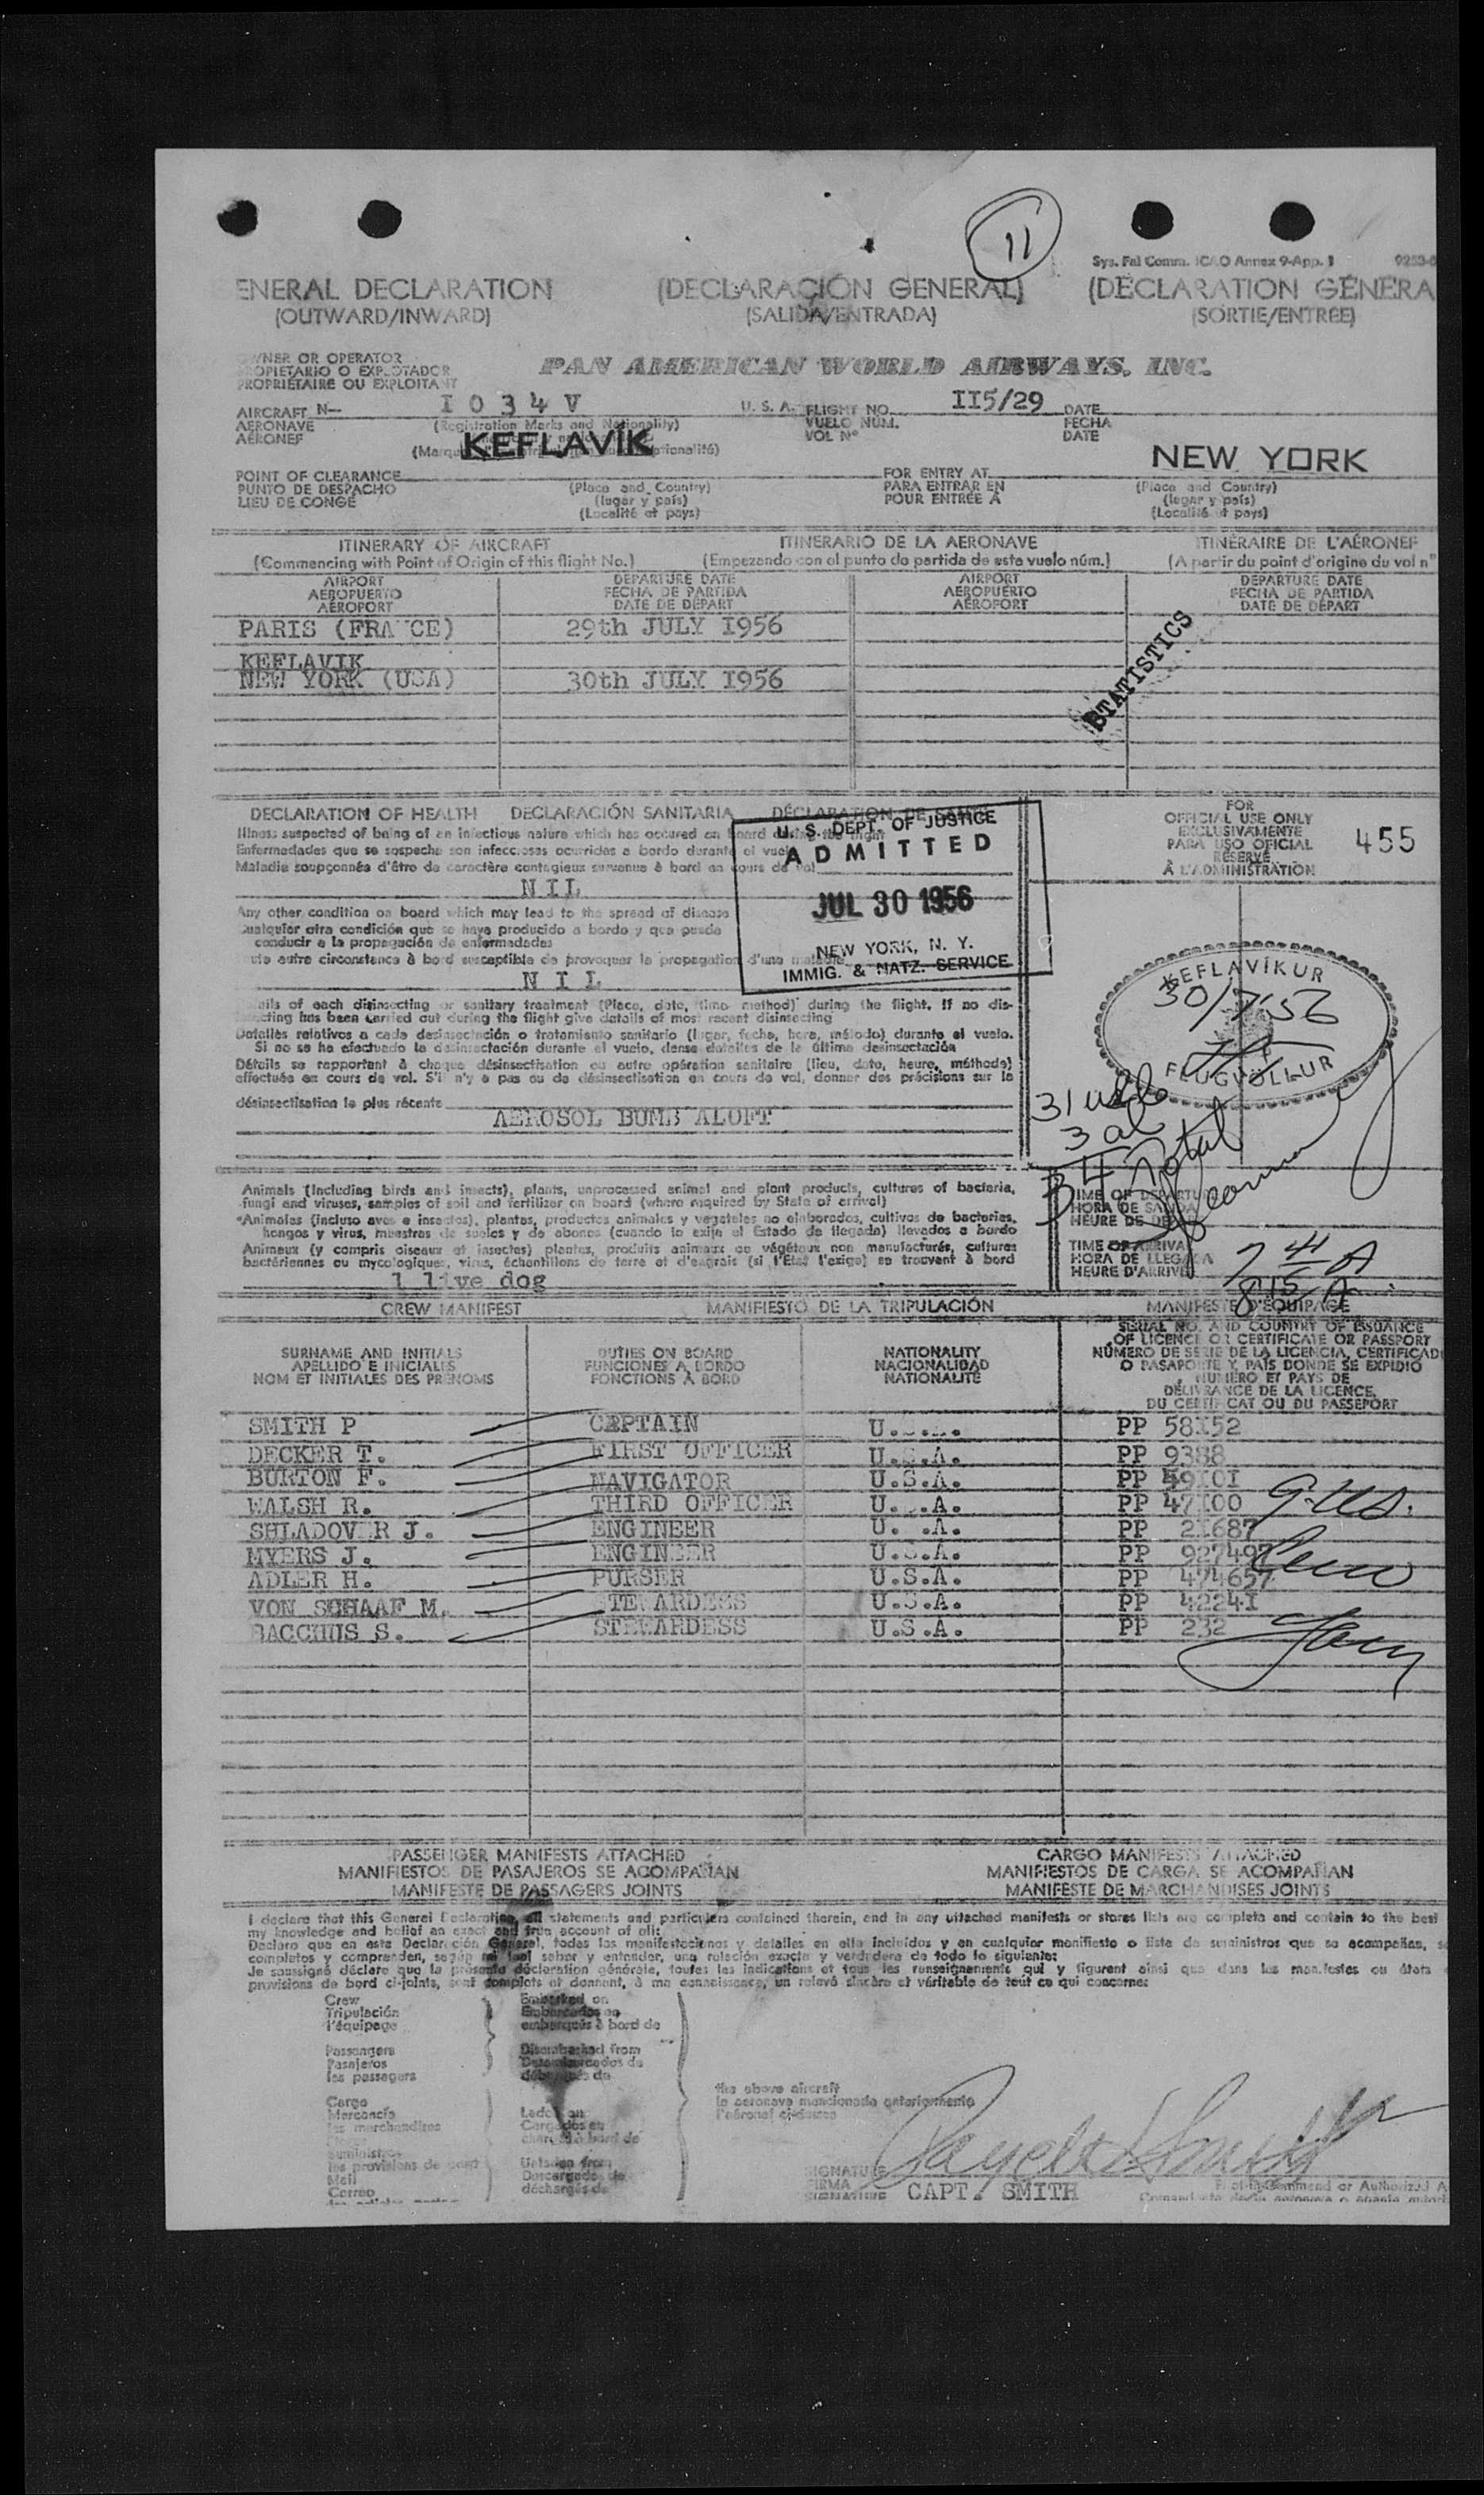 11
Sys. Fal Comm. ICAO Annex 9-App. 1
ENERAL DECLARATION (DECLARACIÓN GENERAL) (DÉCLARATION GÉNÉRA
(OUTWARD/INWARD) (SALIDA/ENTRADA) (SORTIE/ENTRÉE)
WNER OR OPERATOR
OPIETARIO O EXPLOTADOR
PROPRIÉTAIRE OU EXPLOITANT
PAN AMERICAN WORLD AIRWAYS, INC.
AIRCRAFT N— I 0 3 4 V U. S. A. FLIGHT NO. II5/29 DATE
AERONAVE (Registration Marks and Nationality) VUELO NÚM. FECHA
AÉRONEF VOL Nº DATE
KEFLAVÍK
NEW YORK
POINT OF CLEARANCE FOR ENTRY AT
PUNTO DE DESPACHO (Place and Country) PARA ENTRAR EN (Place and Country)
LIEU DE CONGÉ (lugar y país) POUR ENTRÉE À (lugar y país)
(Localité et pays) (Localité et pays)
ITINERARY OF AIRCRAFT ITINERARIO DE LA AERONAVE ITINÉRAIRE DE L'AÉRONEF
(Commencing with Point of Origin of this flight No.) (Empezando con el punto de partida de este vuelo núm.) (A partir du point d'origine du vol n°
AIRPORT DEPARTURE DATE AIRPORT DEPARTURE DATE
AEROPUERTO FECHA DE PARTIDA AEROPUERTO FECHA DE PARTIDA
AÉROPORT DATE DE DÉPART AÉROPORT DATE DE DÉPART
PARIS (FRANCE) 29th JULY I956
KEFLAVIK
NEW YORK (USA) 30th JULY I956
STATISTICS
DECLARATION OF HEALTH DECLARACIÓN SANITARIA DÉCLARATION DE SANTÉ
Illness suspected of being of an infectious nature which has occured on board during the flight
Enfermedades que se sospeche son infecciosas ocurridas a bordo durante el vuelo
Maladie soupçonnée d'être de caractère contagieux survenue à bord en cours de vol
NIL
U. S. DEPT. OF JUSTICE
ADMITTED
JUL 30 1956
NEW YORK, N. Y.
IMMIG. & NATZ. SERVICE
FOR
OFFICIAL USE ONLY
EXCLUSIVAMENTE
PARA USO OFICIAL
RÉSERVÉ
À L'ADMINISTRATION
455
Any other condition on board which may lead to the spread of disease
Cualquier otra condición que se haya producido a bordo y que pueda
conducir a la propagación de enfermedades
autre circonstance à bord susceptible de provoquer la propagation d'une maladie
N I L
KEFLAVÍKUR
30/7-56
FLUGVÖLLUR
ails of each disinsecting or sanitary treatment (Place, date, time method) during the flight. If no dis-
ecting has been carried out during the flight give details of most recent disinsecting
Detalles relativos a cada desinsectación o tratamiento sanitario (lugar, fecha, hora, método) durante el vuelo.
Si no se ha efectuado la desinsectación durante el vuelo, dense detalles de la última desinsectación
Détails se rapportant à chaque désinsectisation ou autre opération sanitaire (lieu, date, heure, méthode)
effectuée en cours de vol. S'il n'y a pas eu de désinsectisation en cours de vol, donner des précisions sur la
désinsectisation la plus récente
AEROSOL BUMB ALOFT
3 al
34 Total
Animals (including birds and insects), plants, unprocessed animal and plant products, cultures of bacteria,
fungi and viruses, samples of soil and fertilizer on board (where required by State of arrival)
Animales (incluso aves e insectos), plantas, productos animales y vegetales no elaborados, cultivos de bacterias,
hongos y virus, muestras de suelos y de abonos (cuando lo exija el Estado de llegada) llevados a bordo
Animaux (y compris oiseaux et insectes) plantes, produits animaux ou végétaux non manufacturés, cultures
bactériennes ou mycologiques, virus, échantillons de terre et d'engrais (si l'État l'exige) se trouvant à bord
1 live dog
TIME OF DEPARTU
HORA DE SALIDA
HEURE DE DÉ
TIME OF ARRIVA
HORA DE LLEGADA
HEURE D'ARRIVÉ
7 41 A
8 15 A
CREW MANIFEST MANIFIESTO DE LA TRIPULACIÓN MANIFESTE D'ÉQUIPAGE
SURNAME AND INITIALS DUTIES ON BOARD NATIONALITY SERIAL NO. AND COUNTRY OF ISSUANCE
APELLIDO E INICIALES FUNCIONES A BORDO NACIONALIDAD OF LICENCE OR CERTIFICATE OR PASSPORT
NOM ET INITIALES DES PRÉNOMS FONCTIONS À BORD NATIONALITÉ NÚMERO DE SERIE DE LA LICENCIA, CERTIFICAD
O PASAPORTE Y PAÍS DONDE SE EXPIDIÓ
NUMÉRO ET PAYS DE
DÉLIVRANCE DE LA LICENCE,
DU CERTIFICAT OU DU PASSEPORT
SMITH P CAPTAIN U.S.A. PP 58I52
DECKER T. FIRST OFFICER U.S.A. PP 9388
BURTON F. NAVIGATOR U.S.A. PP 59I0I
WALSH R. THIRD OFFICER U.S.A. PP 47I00
SHLADOVER J. ENGINEER U.S.A. PP 21687
MYERS J. ENGINEER U.S.A. PP 927497
ADLER H. PURSER U.S.A. PP 474657
VON SCHAAF M. STEWARDESS U.S.A. PP 4224I
BACCHUS S. STEWARDESS U.S.A. PP 232
PASSENGER MANIFESTS ATTACHED CARGO MANIFESTS ATTACHED
MANIFIESTOS DE PASAJEROS SE ACOMPAÑAN MANIFIESTOS DE CARGA SE ACOMPAÑAN
MANIFESTE DE PASSAGERS JOINTS MANIFESTE DE MARCHANDISES JOINTS
I declare that this General Declaration, all statements and particulars contained therein, and in any attached manifests or stores lists are complete and contain to the best
my knowledge and belief an exact and true account of all:
Declaro que en esta Declaración General, todas las manifestaciones y detalles en ella incluidos y en cualquier manifiesto o lista de suministros que se acompañan, s
completos y comprenden, según mi leal saber y entender, una relación exacta y verdadera de todo lo siguiente:
Je soussigné déclare que la présente déclaration générale, toutes les indications et tous les renseignements qui y figurent ainsi que dans les manifestes ou états
provisions de bord ci-joints, sont complets et donnent, à ma connaissance, un relevé sincère et véritable de tout ce qui concerne:
Crew Embarked on
Tripulación Embarcados en
l'équipage embarqués à bord de
Passengers Disembarked from
Pasajeros Desembarcados de
les passagers débarqués de
the above aircraft
la aeronave mencionada anteriormente
l'aéronef ci-dessus
Cargo
Mercancía
les marchandises
Laden on
Cargados en
chargés à bord de
les provisions de bord
Mail
Correo
Unladen from
Descargados de
déchargés de
SIGNATURE
FIRMA
SIGNATURE
CAPT. SMITH